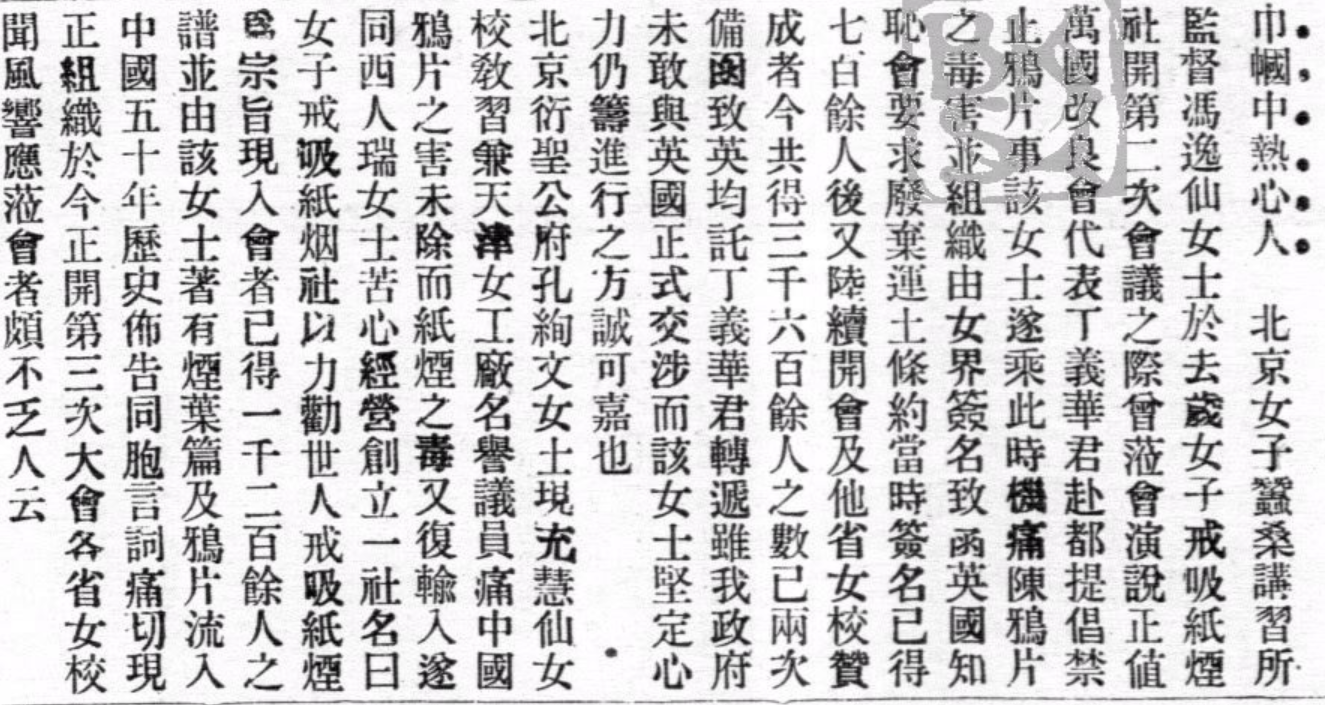 巾幗中熱心人　北京女子蠶桑講習所
監督馮逸仙女士於去歲女子戒吸紙煙
社開第二次會議之際曾蒞會演說正值
萬國改良會代表丁義華君赴都提倡禁
止鴉片事該女士遂乘此時機痛陳鴉片
之毒害並組織由女界簽名致函英國知
恥會要求廢棄運土條約當時簽名已得
七百餘人後又陸續開會及他省女校贊
成者今共得三千六百餘人之數已兩次
備函致英均託丁義華君轉遞雖我政府
未敢與英國正式交涉而該女士堅定心
力仍籌進行之方誠可嘉也
北京衍聖公府孔絢文女士現充慧仙女
校敎習兼天津女工廠名譽議員痛中國
鴉片之害未除而紙煙之毒又復輸入遂
同西人瑞女士苦心經營創立一社名曰
女子戒吸紙烟社以力勸世人戒吸紙煙
爲宗旨現入會者已得一千二百餘人之
譜並由該女士著有煙葉篇及鴉片流入
中國五十年歷史佈告同胞言詞痛切現
正組織於今正開第三次大會各省女校
聞風響應蒞會者頗不乏人云